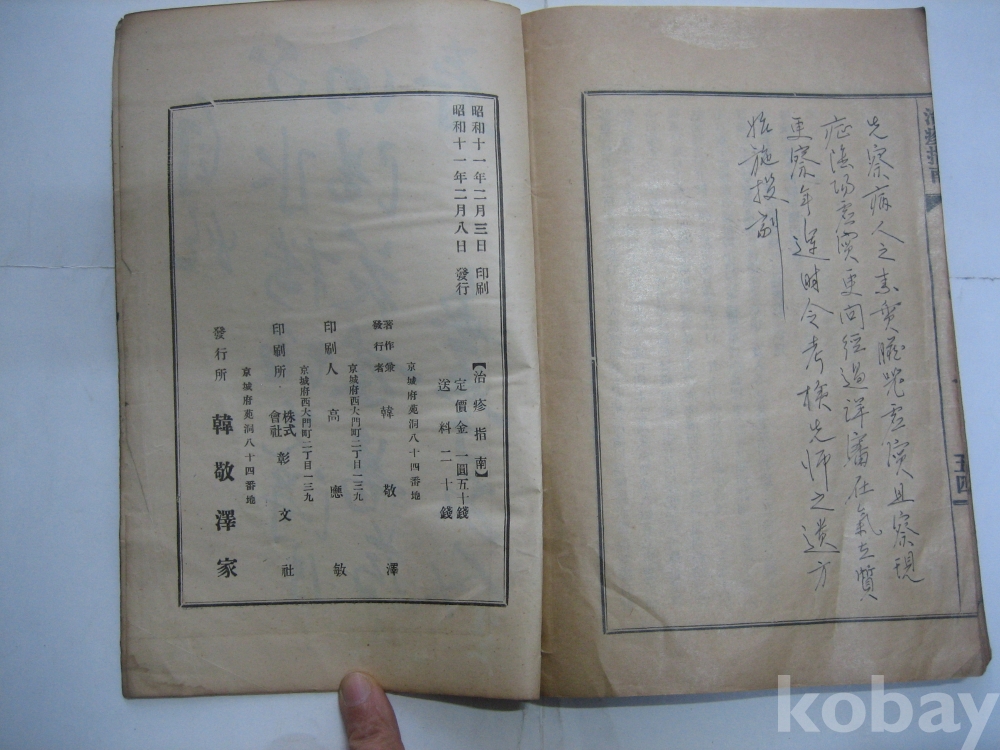 先察病人之素質臟器虛實且察現
症陰陽虛實更問經過詳審在氣在質
更察年運時令考検先師之遺方
始施投剤
五四
昭和十一年二月三日 印刷
昭和十一年二月八日 發行
【治疹指南】
定價金 一圓五十錢
送料 二十錢
京城府苑洞八十四番地
著作兼發行者 韓敬澤
京城府西大門町二丁目一三九
印刷人 高應敏
京城府西大門町二丁目一三九
印刷所 株式會社 彰文社
京城府苑洞八十四番地
發行所 韓敬澤家
kobay